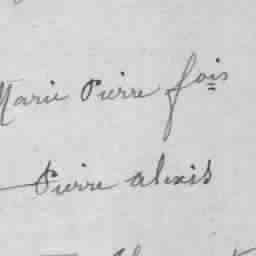 Marie Pierre fois
Pierre alexis